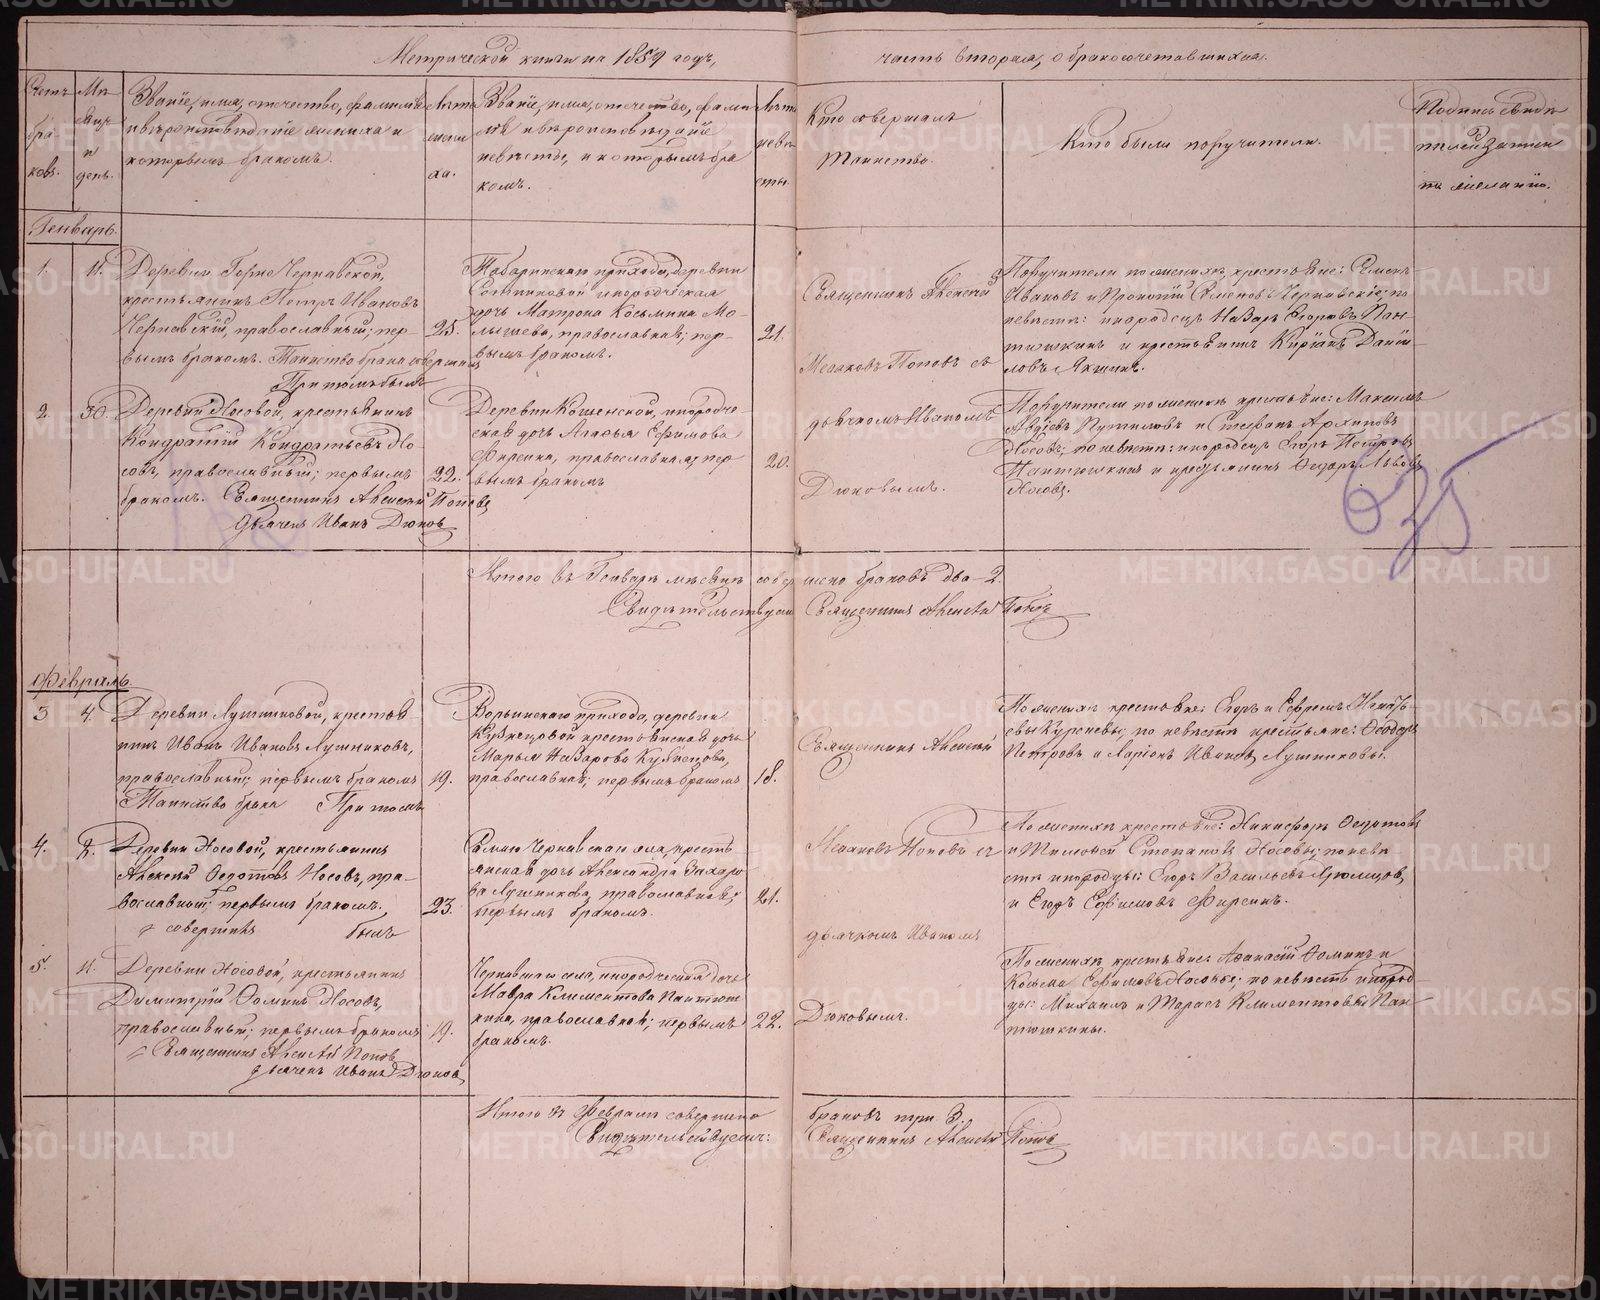 Метрической книги на 1859 годъ,
часть вторая, о бракосочетавшихся.
Счетъ браковъ.
Мѣсяцъ и день.
Званіе, имя, отечество, фамилія
и вѣроисповѣданіе жениха и
которымъ бракомъ.
Лѣта
жени
ха.
Званіе, имя, отечество, фами
лія и вѣроисповѣданіе
невѣсты, и которымъ бра
комъ.
Лѣта
невѣ
сты.
Кто совершалъ
Таинство.
Кто были поручители.
Подпись свидѣ
телей записи
по желанію.
Генварь.
1.
11.
Деревни Горн Чернавской,
крестьянинъ Петръ Ивановъ
Чернавскій, православный; пер-
вымъ бракомъ. Таинство брака совершилъ
При томъ былъ
25.
Табаринскаго прихода, деревни
Сотниковой инородческая
дочь Матрона Косьмина Ма-
лышева, православная; пер-
вымъ бракомъ.
21.
Священникъ Алексей
Поручители по женихѣ, крестьяне: Семенъ
Ивановъ и Прокопій Семеновъ Чернавскіе; по
невѣстѣ: инородецъ Назаръ Егоровъ Пан-
тюшкинъ и крестьянинъ Кирианъ Даніи-
ловъ Якшинъ.
2.
30.
Деревни Носовой, крестьянинъ
Кондратій Кондратьевъ Но-
совъ, православный; первымъ
бракомъ. Священникъ Алексей Поповъ
Дьячекъ Иванъ Дюковъ
22.
Деревни Кошенской, инородче-
ская дочь Агафья Ефимова
Фирсина, православная; пер
вымъ бракомъ
20.
дьячкомъ Иваномъ
Дюковымъ.
Поручители по женихѣ крестьяне: Максимъ
Путиловъ и Стефанъ Архиповъ
Носовъ; по невѣстѣ: инородецъ Егоръ Петровъ
Пантюшкинъ и крестьянинъ Федоръ Львовъ
Носовъ.
Итого въ Генварѣ мѣсяцѣ совершено браковъ два – 2.
Свидѣтельствуемъ Священникъ Алексей Поповъ
Февраль.
3
4.
Деревни Лушниковой, крестья-
нинъ Иванъ Ивановъ Лушниковъ,
православный; первымъ бракомъ
Таинство брака При томъ
19.
прихода, деревни
Кузнецовой крестьянская дочь
Марья Назарова Кузнецова,
православная; первымъ бракомъ
18.
Священникъ Алексей
По женихѣ крестьяне: Егоръ и Ефремъ
по невѣстѣ крестьяне: Ѳедоръ
Петровъ и Ларіонъ Ивановъ Лушниковы.
4.
8.
Деревни Носовой, крестьянинъ
Алексей Федотовъ Носовъ, пра-
вославный; первымъ бракомъ.
совершилъ былъ
23.
Самаго Чернавскаго села, кресть
янская дочь Александра Захаро
ва Лушникова, православная;
первымъ бракомъ.
21.
дьячкомъ Иваномъ
По женихѣ крестьяне: Никифоръ Федотовъ
и Тимофей Степановъ Носовы; по невѣ
стѣ инородцы: Егоръ Васильевъ
и Егоръ Ефимовъ Фирсинъ.
5.
11.
Деревни Носовой, крестьянинъ
Димитрій Ѳоминъ Носовъ,
православный; первымъ бракомъ
Священникъ Алексей Поповъ
дьячекъ Иванъ Дюковъ
19.
Чернавскаго села, инородческая дочь
Мавра Климентова Пантюш
кина, православная; первымъ
бракомъ.
22.
Дюковымъ.
По женихѣ крестьяне: Афанасій Ѳоминъ и
Косьма Ефимовъ Носовы; по невѣстѣ инород-
цы: Михаилъ и Тарасъ Климентовы Пан-
тюшкины.
Итого въ Февралѣ совершено браковъ три 3.
Свидѣтельствуемъ: Священникъ Алексей Поповъ
METRIKI.GASO-URAL.RU